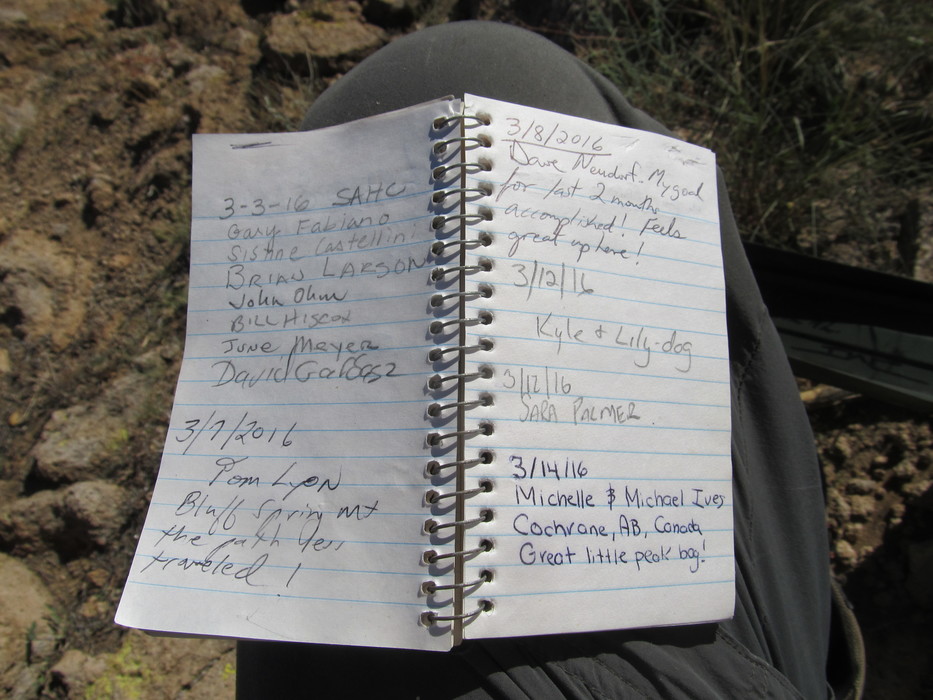 3-3-16 SAHC
Gary Fabiano
Sistine Castellini
BRIAN LARSON
John Ohm
BILL HISCOX
June Meyer
David
3/7/2016
Tom Lyon
Bluff Spring Mt
the path less
traveled!
3/8/2016
Dave Neudorf - My goal
for last 2 months
accomplished! Feels
great up here!
3/12/16
Kyle & Lily-dog
3/12/16
SARA PALMER
3/14/16
Michelle & Michael Ives
Cochrane, AB, Canada
Great little peak bag!